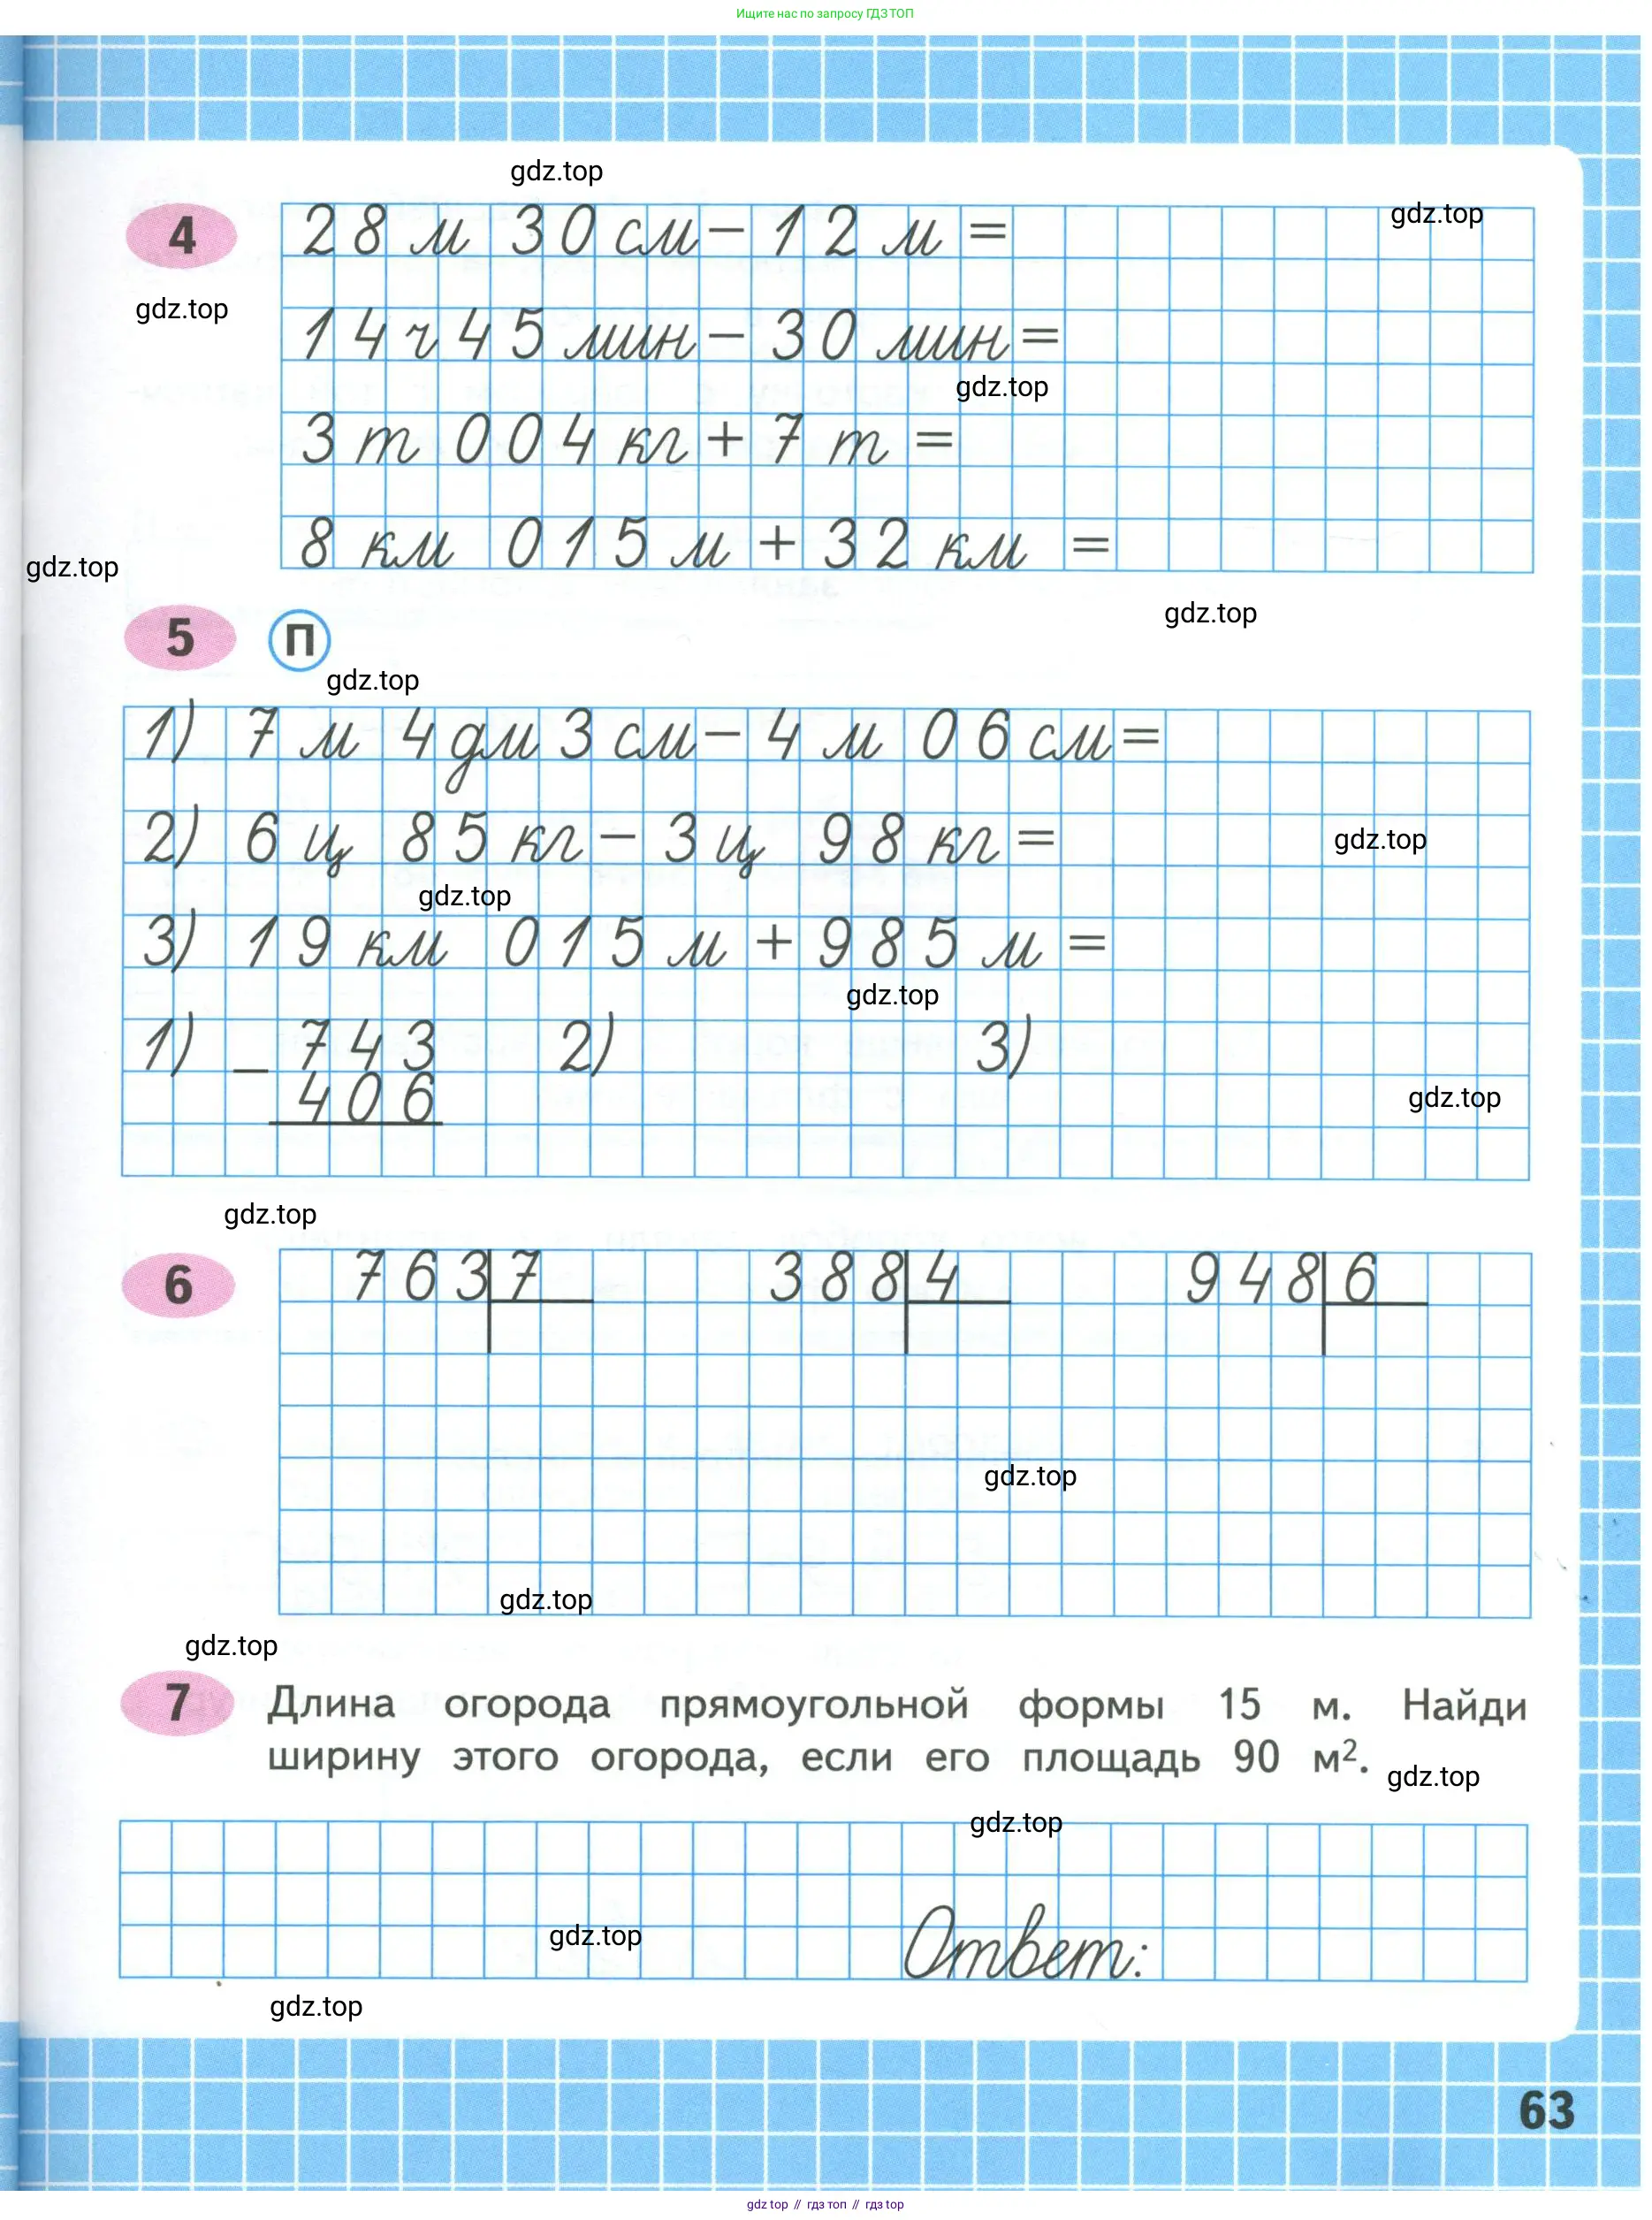 Ищите нас по запросу ГДЗ ТОП
gdz.top
4 28 м 30 см - 12 м =
gdz.top
gdz.top
14 ч 45 мин - 30 мин =
gdz.top
3 т 004 кг + 7 т =
8 км 015 м + 32 км =
gdz.top
gdz.top
5 П
gdz.top
1) 7 м 4 дм 3 см - 4 м 06 см =
2) 6 ц 85 кг - 3 ц 98 кг =
gdz.top
gdz.top
3) 19 км 015 м + 985 м =
gdz.top
1) - 743 2) 3)
406
gdz.top
gdz.top
6 763 7 388 4 948 6
gdz.top
gdz.top
gdz.top
7 Длина огорода прямоугольной формы 15 м. Найди
ширину этого огорода, если его площадь 90 м².
gdz.top
gdz.top
gdz.top
Ответ:
gdz.top
63
gdz top // гдз топ // гдз top